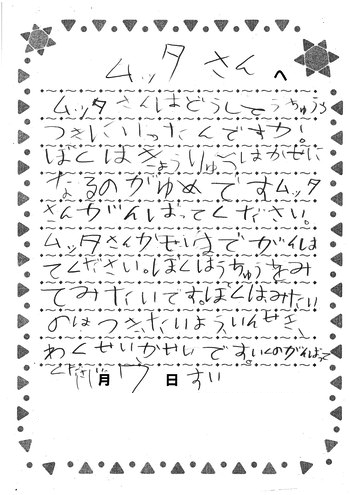 ムッタさんへ
ムッタさんはどうしてうちゅうひ
つきにいったんですか!
ぼくはきょうりゅうはかせに
なるのがゆめですムッタ
さんがんばってください。
ムッタさんがせいまでがんば
てください。ぼくはうちゅうをみ
てみたいです。ぼくはみたい
のはつき、たいよういんせき、
わくせいかせいです。いくのがんばって
ください 月17日すい